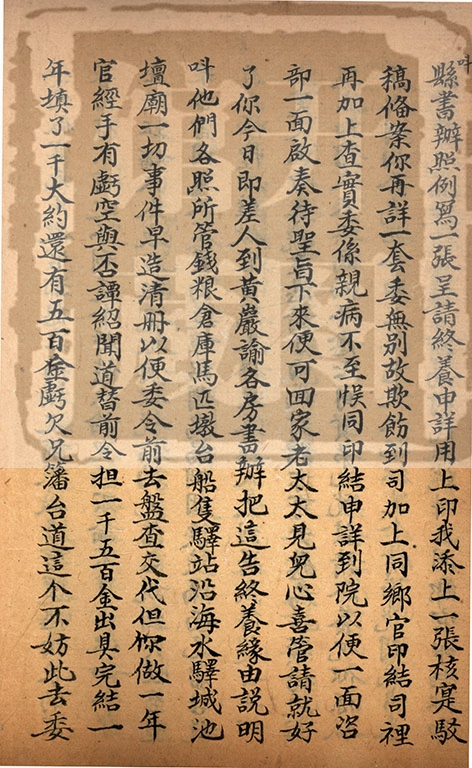 叫縣書辦照例寫一張呈請終養申詳用上印我添上一張核寔駁
稿俻案你再詳一套委無别故欺飭到司加上同鄉官印結司裡
再加上查實委係親病不至悮同印結申詳到院以便一面咨
部一面啟奏待聖旨下來便可回家老太太見兒心喜管請就好
了你今日即差人到黄巖諭各房書辦把這告終養緣由說明
呌他們各照所管錢粮倉庫馬匹墩台船隻驛站沿海水驛城池
壇廟一切事件早造清冊以便委令前去盤查交代但你做一年
官經手有虧空與否譚紹聞道替前令担一千五百金出具完結一
年填了一千大約還有五百金虧欠兄籓台道這个不妨此去委